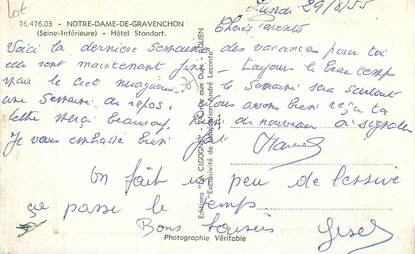 Lot
76.476.03 - NOTRE-DAME-DE-GRAVENCHON
(Seine-Inférieure) - Hôtel Standart.
Lundi 29/8/55
Chers parents
Voici la dernière semaine des vacances pour toi
elle sont maintenant Toujours le beau temps
mais le ciel nuageux la semaine sera surtout
une semaine de repos. Nous avons bien reçu ta
lettre merci beaucoup Rien de nouveau à signaler
Je vous embrasse bien fort
On fait un peu de lessive
ça passe le temps
Bons baisers
Editions "LA CIGOGNE" ROUEN
Photographie Véritable